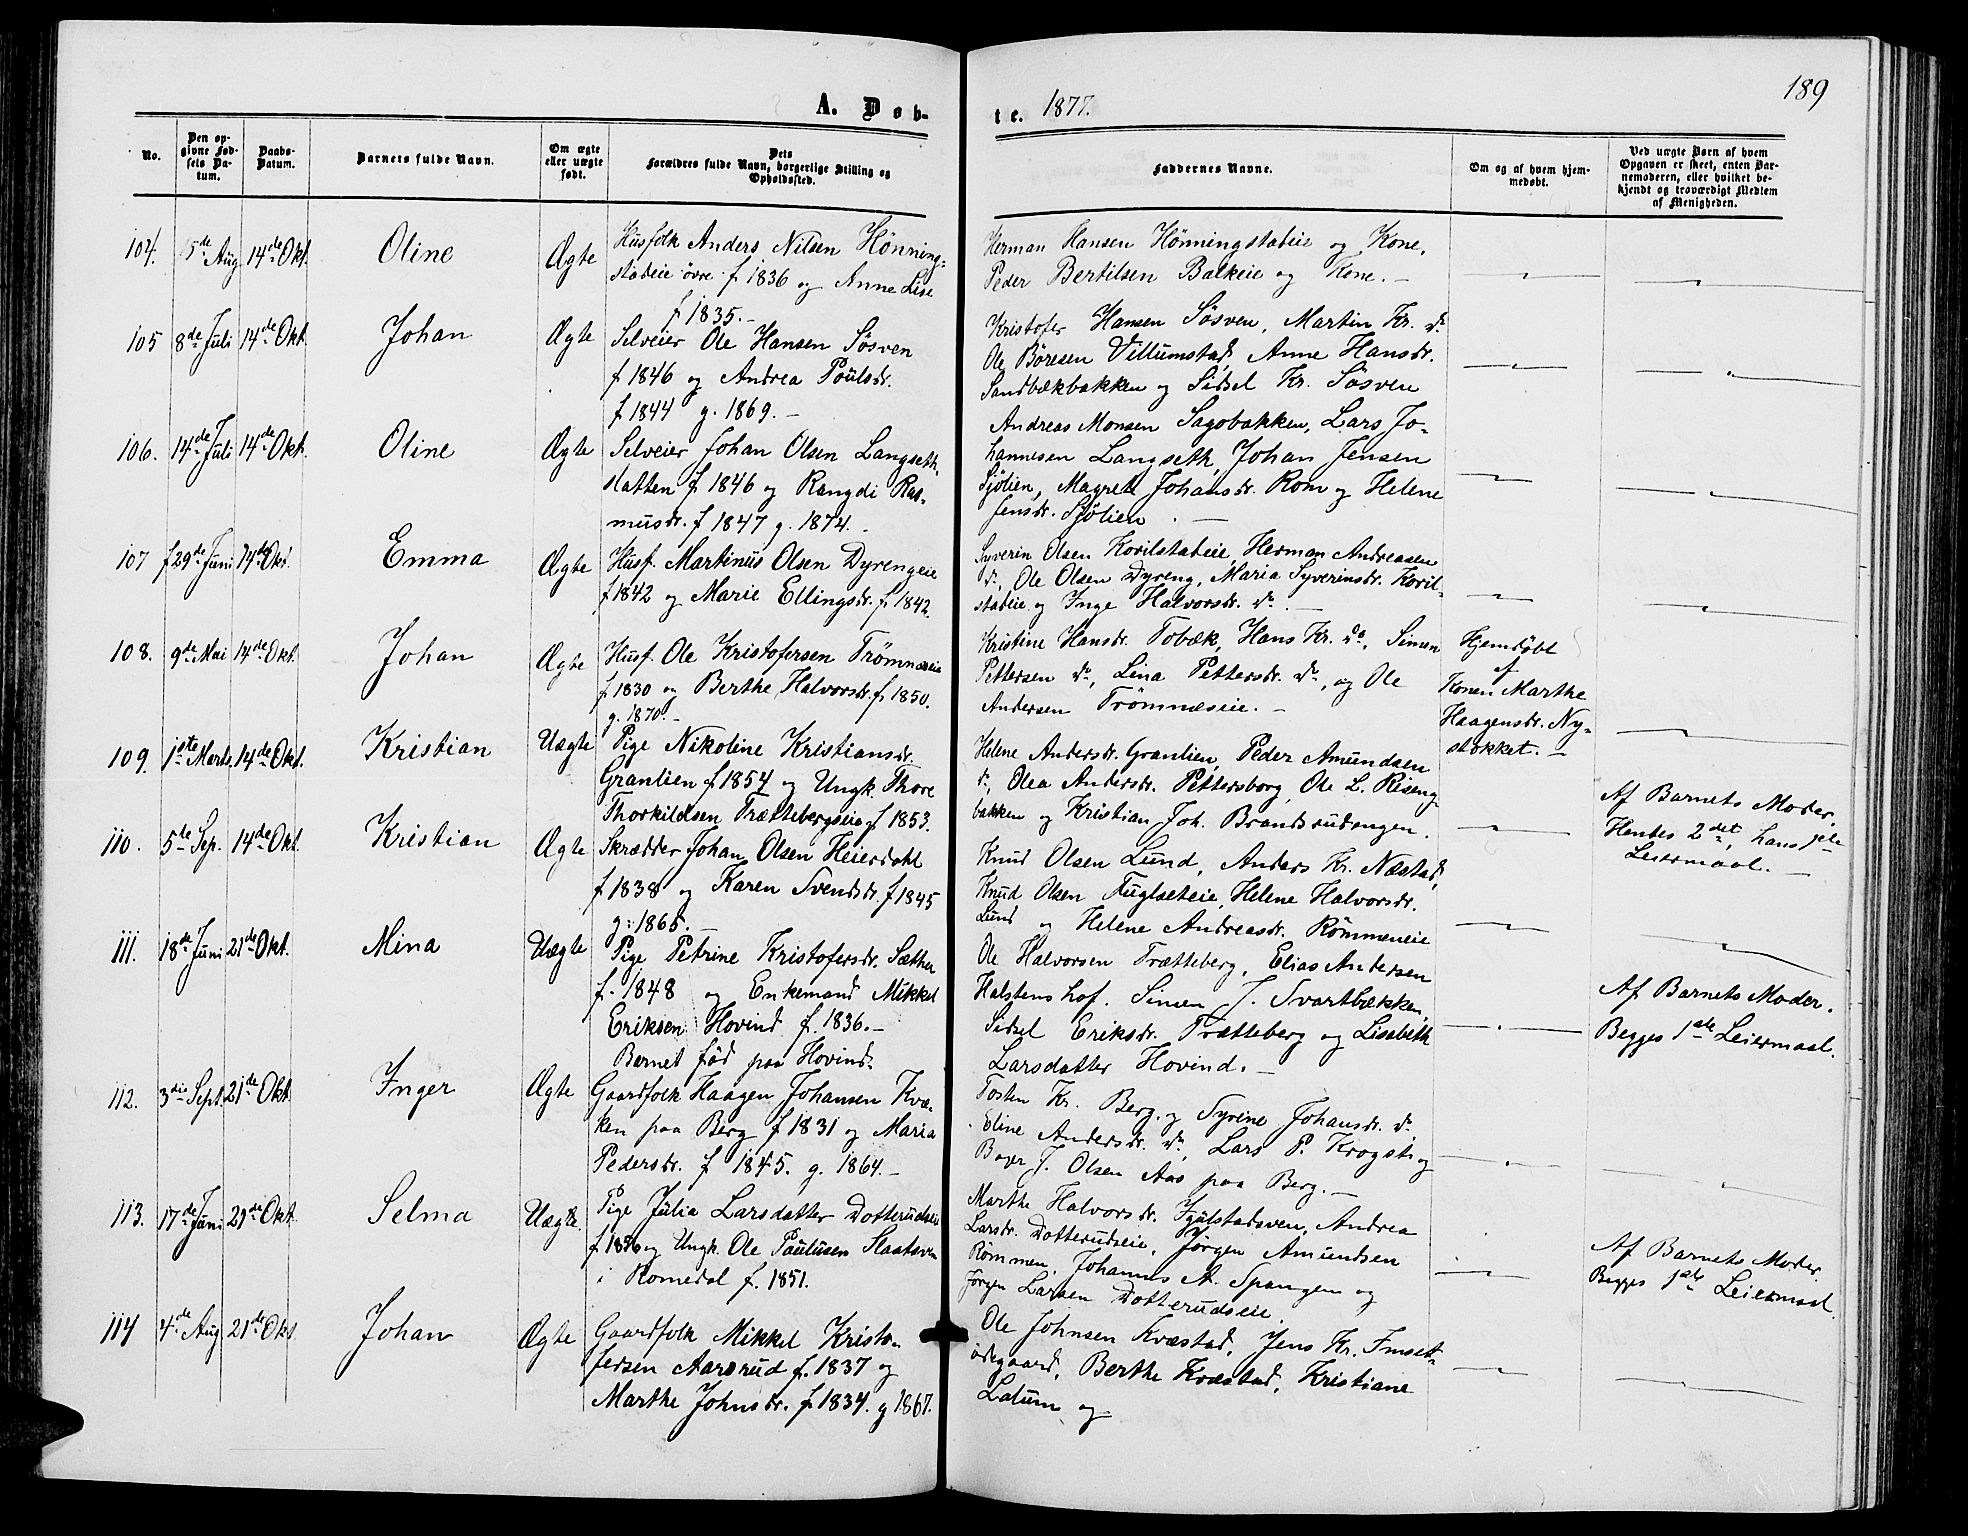 189
A. Døb-
te. 1877.
No.
Den op-
givne Fød-
sels Da-
tum.
Daabs-
Datum.
Barnets fulde Navn.
Om ægte
eller uægte
født.
Dets
Forældres fulde Navn, borgerlige Stilling og
Opholdssted.
Faddernes Navne.
Om og af hvem hjem-
medøbt.
Ved uægte Børn af hvem
Opgaven er skeet, enten Bar-
nemoderen, eller hvilket be-
kjendt og troværdigt Medlem
af Menigheden.
104. 5de Aug 14de Okt. Oline Ægte
Husfolk Anders Nilsen Hönning-
stadeie övre f 1836 og Anne Lise
f 1835.-
Herman Hansen Hönningstadeie og Kone,
Peder Bertilsen Balkeie og Kone.-
105 8de Juli 14de Okt. Johan Ægte
Selveier Ole Hansen Sösven
f 1846 og Andrea Poulsdr.
f 1844 g. 1869.-
Kristofer Hansen Sösven, Martin Kr. do
Ole Böresen Villumstad, Anne Hansdr.
Sandbækbakken og Sidsel Kr. Sösven
106. 14de Juli 14de Okt. Oline Ægte
Selveier Johan Olsen Langseth-
slatten f 1846 og Rangdi Ras-
musdr. f 1847 g. 1874.-
Andreas Monsen Sagobakken, Lars Jo-
hannesen Langseth, Johan Jensen
Sjölien, Magrete Johansdr. Rom og Helene
Jensdr. Sjölien.-
107 f 29de Juni 14de Okt Emma Ægte
Husf. Martinus Olsen Dyrengeie
f 1842 og Marie Ellingsdr. f. 1842.
Syverin Olsen Korilstadeie, Herman Andreasen
do, Ole Olsen Dyreng, Maria Syverinsdr. Koril-
stadeie og Inge Halvorsdr. do.-
108. 9de Mai 14de Okt. Johan Ægte
Husf. Ole Kristofersen Trömnæseie
f 1830 og Berthe Halvorsdr. f. 1850.
g. 1870.-
Kristine Hansdr. Tobæk, Hans Kr. do, Simen
Pettersen do, Lina Pettersdr. do, og Ole
Andersen Trömnæseie.-
Hjemdöbt
af
Konen Marthe
Haagensdr. Ny-
stokket.-
109. 1ste Marts. 14de Okt. Kristian Uægte
Pige Nikoline Kristiansdr.
Granlien f 1854 og Ungk. Thore
Thorkildsen Trættebergseie f 1853.
Helene Andersdr. Granlien, Peder Amundsen
do, Olea Andersdr. Pettersborg, Ole L. Riseng-
bakken og Kristian Joh. Brandsrudengen.
Af Barnets Moder.
Hendes 2det, hans 1ste
Leiermaal.-
110. 5te Sep. 14de Okt. Kristian Ægte
Skrædder Johan Olsen Heierdahl
f 1838 og Karen Svendsdr. f 1845
g. 1865.-
Knud Olsen Lund, Anders Kr. Næstad,
Knud Olsen Fuglseteie, Helene Halvorsdr.
Lund og Helene Andreasdr. Römmeneie
111. 18de Juni 21de Okt. Mina Uægte
Pige Petrine Kristofersdr. Sæther
f. 1848 og Enkemand Mikkel
Eriksen Hovind f. 1836.-
Barnet fød paa Hovind.
Ole Halvorsen Trætteberg, Elias Andersen
Halstenshof. Simen J. Svartbækken,
Sidsel Eriksdr. Trætteberg og Lisabeth
Larsdatter Hovind.-
Af Barnets Moder.
Begges 1ste Leiermaal.
112. 3die Sept. 21de Okt. Inger Ægte
Gaardfolk Haagen Johansen Kvæ-
ken paa Berg f 1831 og Maria
Pedersdr. f 1845. g. 1864.-
Tosten Kr. Berg og Syrine Johansdr. do
Eline Andersdr. do, Lars P. Krogsti og
J. Olsen Aas paa Berg.-
113. 17de Juni 21de Okt. Selma Uægte
Pige Julia Larsdatter Dotterudseie
f. 1856 og Ungk. Ole Paulusen Slaatsven
i Romedal f. 1851.
Marthe Halvorsdr. Fjulstadsven, Andrea
Larsdr. Dotterudseie, Jörgen Amundsen
Rømmen, Johannes A. Spangen og
Jörgen Larsen Dotterudseie.
Af Barnets Moder.
Begges 1ste Leiermaal.
114 4de Aug 21de Okt. Johan Ægte
Gaardfolk Mikkel Kristo-
fersen Aarsrud f. 1837 og
Marthe Johnsdr. f 1834. g 1867.
Ole Johnsen Kvæstad, Jens Kr. Imset-
ödegaard, Berthe Kvæstad, Kristiane
Latum og